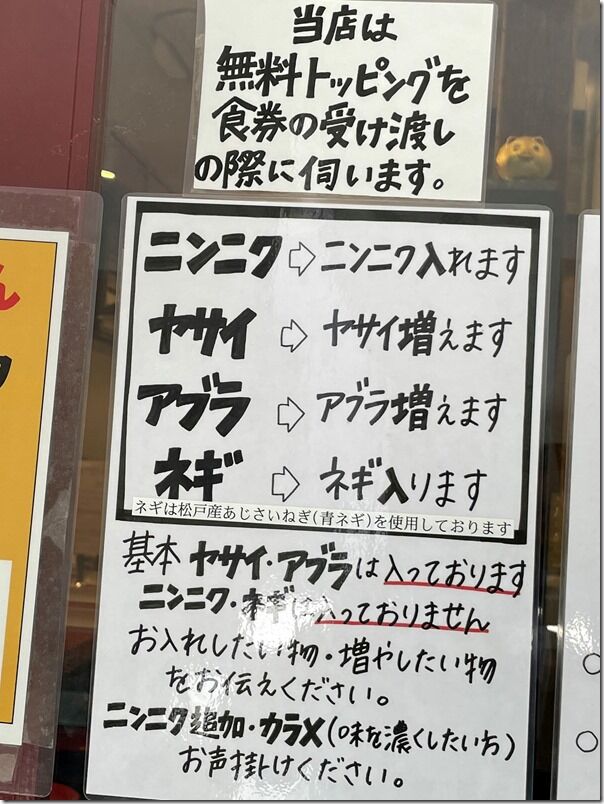 当店は
無料トッピングを
食券の受け渡し
の際に伺います。
ニンニク⇨ニンニク入れます
ヤサイ⇨ヤサイ増えます
アブラ⇨アブラ増えます
ネギ⇨ネギ入ります
ネギは松戸産あじさいねぎ(青ネギ)を使用しております
基本 ヤサイ・アブラは入っております
ニンニク・ネギは入っておりません
お入れしたい物・増やしたい物
をお伝えください。
ニンニク追加・カラメ(味を濃くしたい方)
お声掛けください。
ん